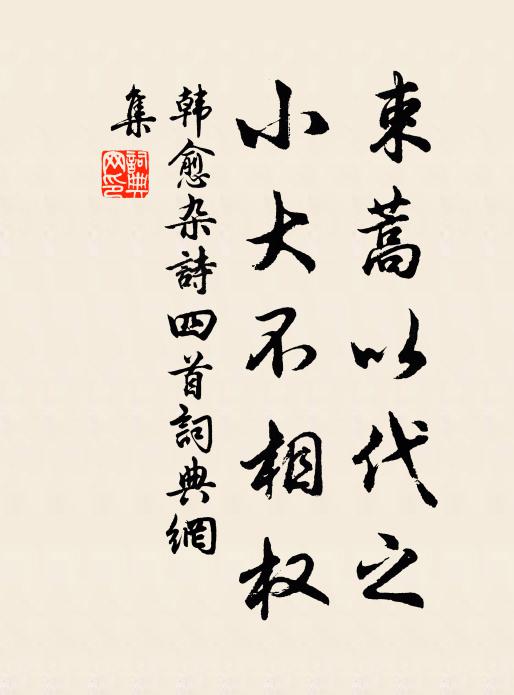 束蒿以代之
小大不相权
韩愈杂诗四首詞典網
集
詞典网印